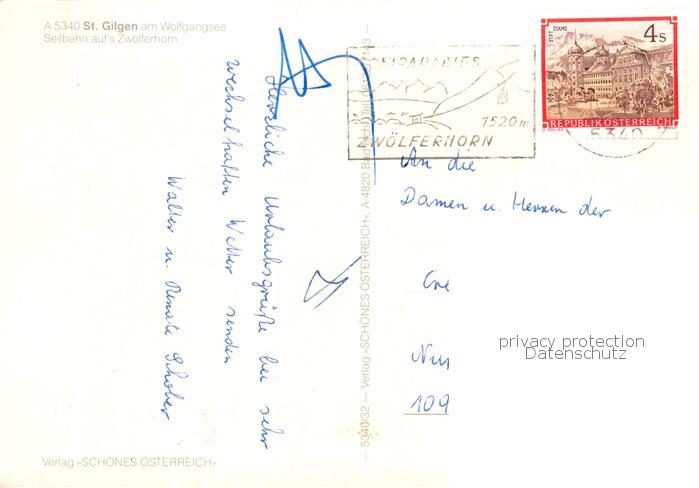 A-5340 St. Gilgen am Wolfgangsee
Seilbahn auf's Zwölferhorn
Herzliche Urlaubsgrüße bei sehr
wechselhaften Wetter senden
Walter u. Renate Schober
Verlag »SCHÖNES ÖSTERREICH«
5340/32 — Verlag »SCHÖNES ÖSTERREICH«, A-4820 Bad
SCHIPARADIES
1520 m
ZWÖLFERHORN
STIFT STAMS
4 S
REPUBLIK ÖSTERREICH
5340
An die
Damen u. Herren der
109
privacy protection
Datenschutz